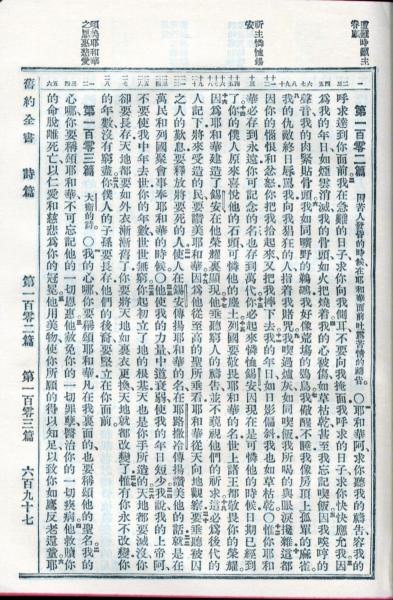 遭難時籲主眷顧
祈主憐憫錫安
頌美耶和華之恩惠慈愛
第一百零二篇 困苦人發昏的時候在耶和華面前吐露苦情的禱告。〇耶和華阿求你聽我的禱告容我的
呼求達到你面前我在急難的日子求你向我側耳不要向我掩面我呼求的日子求你快快應允我因
為我的年日如煙雲消滅我的骨頭如火把燒着我的心被傷如草枯乾甚至我忘記喫飯因我唉哼的
聲音我的肉緊貼骨頭我如同曠野的鵜鶘我好像荒場的鴞鳥我儆醒不睡我像房頂上孤單的麻雀
我的仇敵終日辱罵我向我猖狂的人指着我賭咒我喫過爐灰如同喫飯我所喝的與眼淚攙雜這都
因你的惱恨和忿怒你把我拾起來又把我摔下去我的年日如日影偏斜我也如草枯乾〇惟你耶和
華必存到永遠你可記念的名也存到萬代你必起來憐恤錫安因現在是可憐他的時候日期已經到
了你的僕人原來喜悅他的石頭可憐他的塵土列國要敬畏耶和華的名世上諸王都敬畏你的榮耀
因為耶和華建造了錫安在他榮耀裏顯現他垂聽窮人的禱告並不藐視他們的祈求這必為後代的
人記下將來受造的民要讚美耶和華因為他從至高的聖所垂看耶和華從天向地觀察要垂聽被囚
之人的歎息要釋放將要死的人使人在錫安傳揚耶和華的名在耶路撒冷傳揚讚美他的話就是在
萬民和列國聚會事奉耶和華的時候〇他使我的力量中道衰弱使我的年日短少我說我的上帝阿
不要使我中年去世你的年數世世無窮你起初立了地的根基天也是你手所造的天地都要滅沒你
卻要長存天地都要如外衣漸漸舊了你要將天地如裏衣更換天地就都改變了惟有你永不改變你
的年數沒有窮盡你僕人的子孫要長存他們的後裔要堅立在你面前
第一百零三篇 大衛的詩。〇我的心哪你要稱頌耶和華凡在我裏面的也要稱頌他的聖名我的
心哪你要稱頌耶和華不可忘記他的一切恩惠他赦免你的一切罪孽醫治你的一切疾病他救贖你
的命脫離死亡以仁愛和慈悲為你的冠冕他用美物使你所願的得以知足以致你如鷹反老還童耶
舊約全書 詩篇 第一百零二篇 第一百零三篇 六百九十七